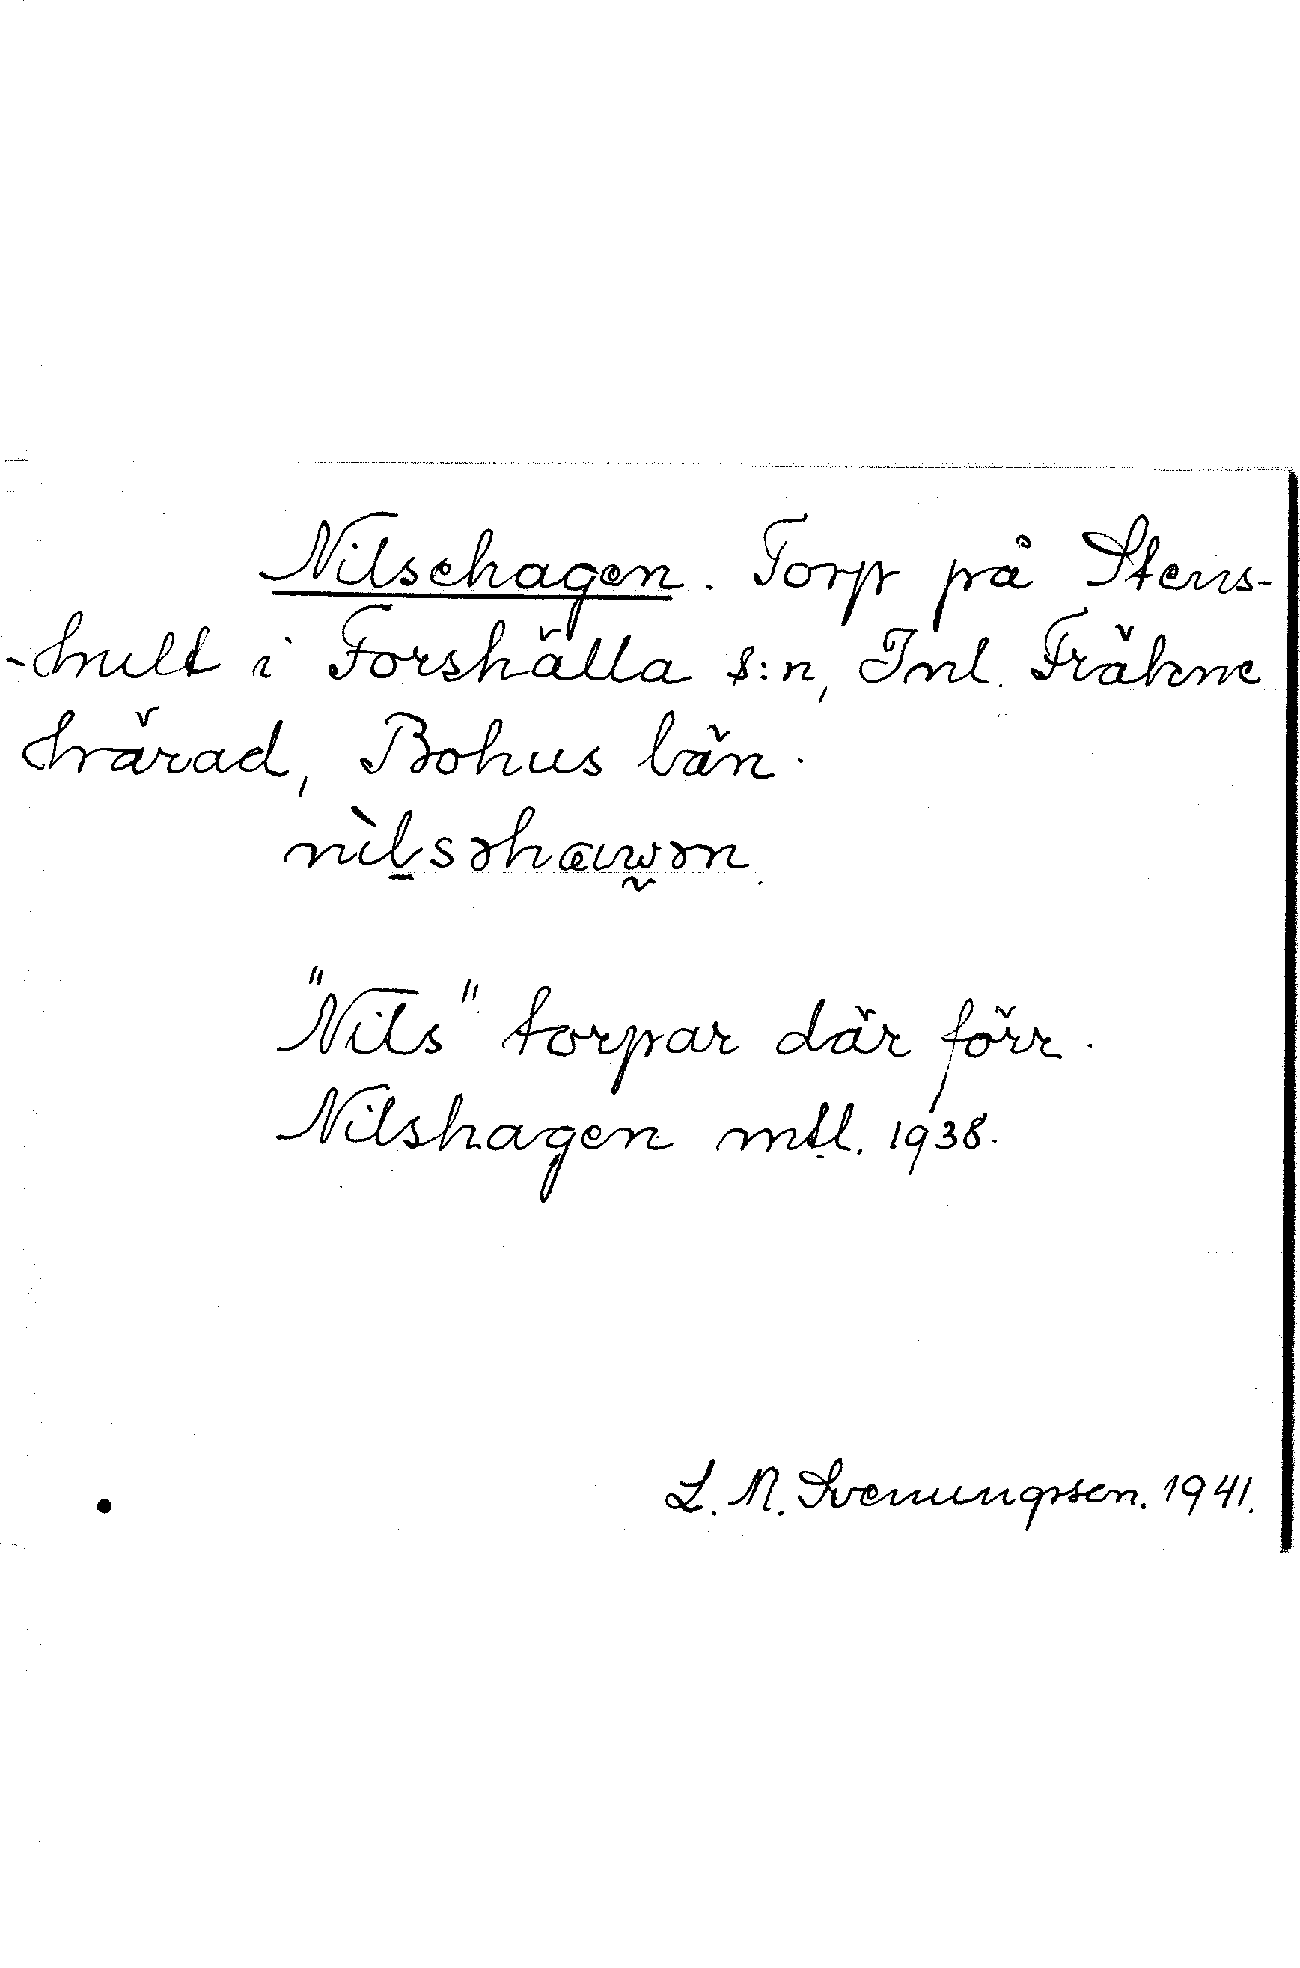 Nilsehagen. Torp på Stens-
-hult i Forshälla s:n, Inl. Fräkne
härad, Bohus län.
nìl̠səhaw̰ən
"Nils" torpar där förr.
Nilshagen mtl. 1938.
L. N. Svenungsson. 1941.